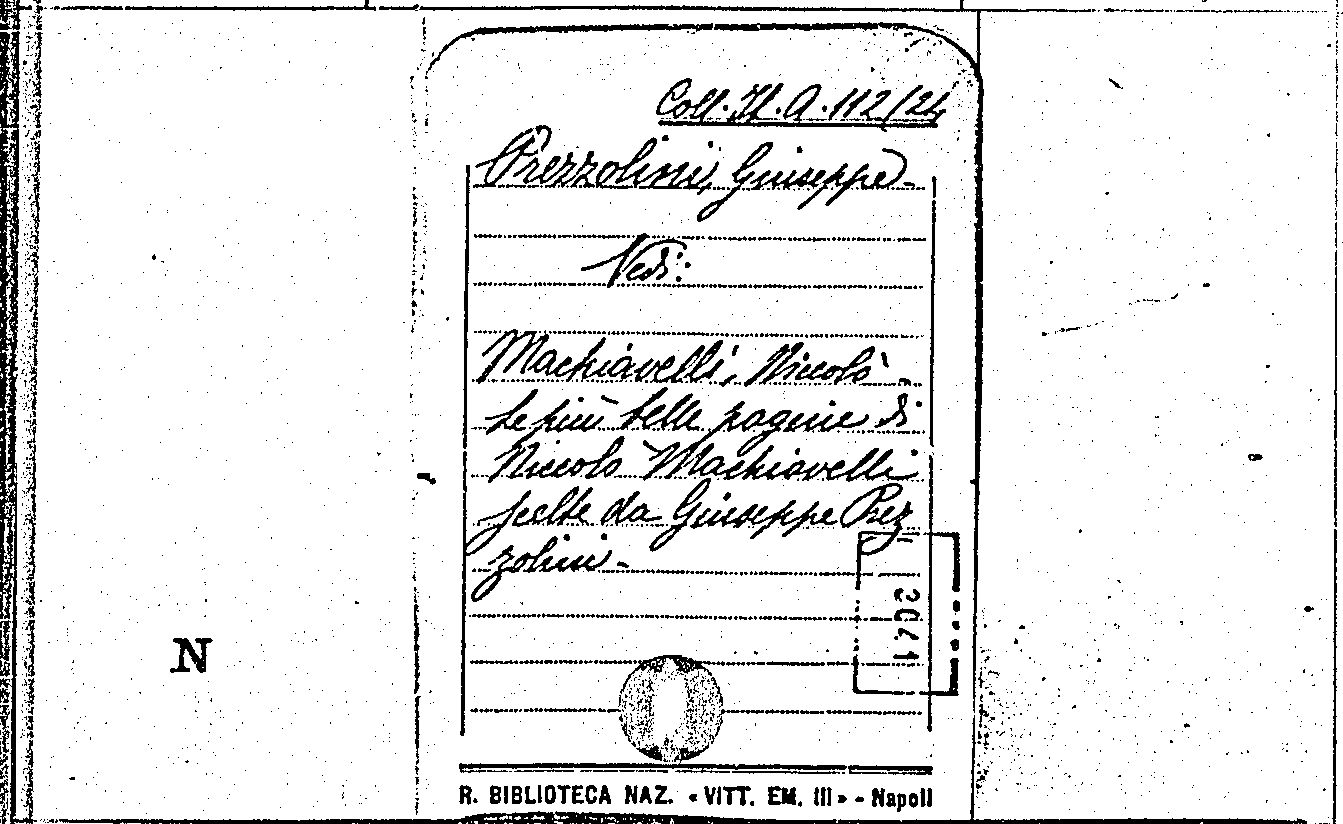 Coll. It. A. 112/24
Prezzolini, Giuseppe.
Vedi:
Machiavelli, Niccolò.
Le più belle pagine di
Niccolò Machiavelli
scelte da Giuseppe Prez
zolini.
2041
N
R. BIBLIOTECA NAZ. «VITT. EM. III» - Napoli